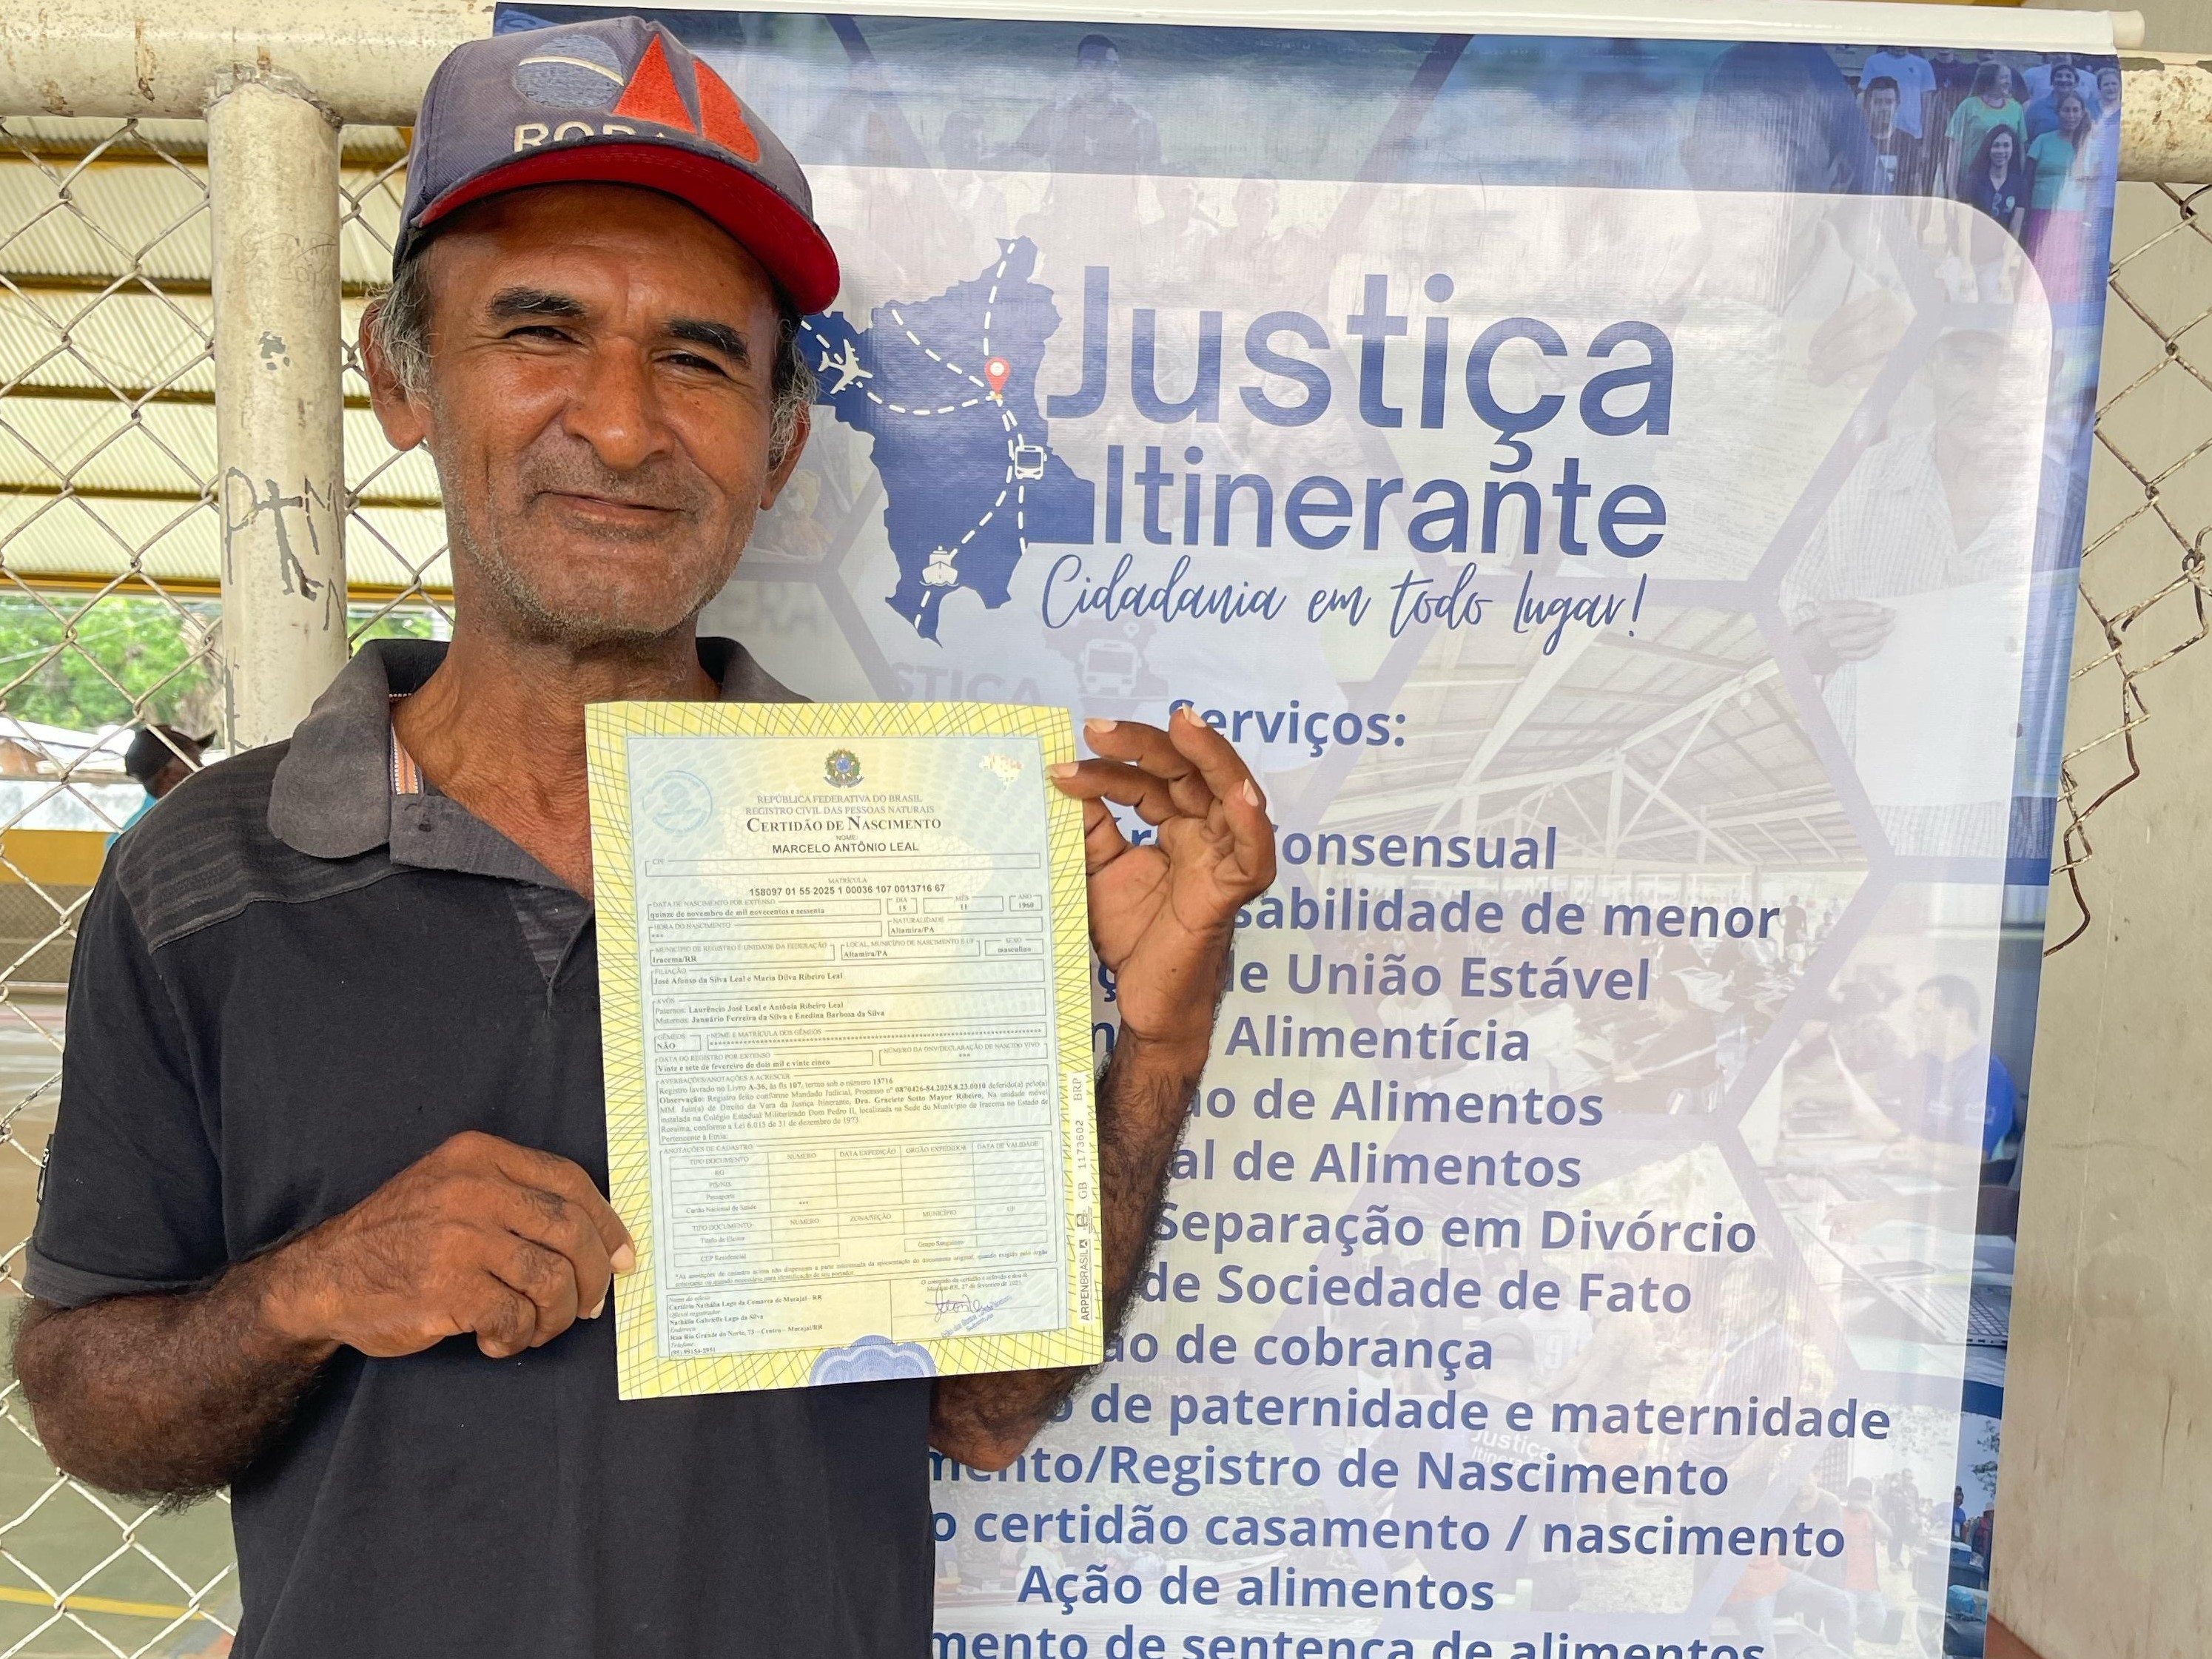 Justiça
Itinerante
Cidadania em todo lugar!
Serviços:
onsensual
sabilidade de menor
de União Estável
Alimentícia
ão de Alimentos
al de Alimentos
Separação em Divórcio
de Sociedade de Fato
ão de cobrança
de paternidade e maternidade
mento/Registro de Nascimento
o certidão casamento / nascimento
Ação de alimentos
mento de sentença de alimentos
REPÚBLICA FEDERATIVA DO BRASIL
REGISTRO CIVIL DAS PESSOAS NATURAIS
CERTIDÃO DE NASCIMENTO
NOME
MARCELO ANTÔNIO LEAL
CPF
MATRÍCULA
158097 01 55 2025 1 00036 107 0013716 67
DATA DE NASCIMENTO POR EXTENSO DIA MÊS ANO
quinze de novembro de mil novecentos e sessenta 15 11 1960
HORA DO NASCIMENTO NATURALIDADE
*** Altamira/PA
MUNICÍPIO DE REGISTRO E UNIDADE DA FEDERAÇÃO LOCAL, MUNICÍPIO DE NASCIMENTO E UF SEXO
Iracema/RR Altamira/PA masculino
FILIAÇÃO
José Afonso da Silva Leal e Maria Dilva Ribeiro Leal
AVÓS
Paternos: Laurêncio José Leal e Antônia Ribeiro Leal
Maternos: Januário Ferreira da Silva e Enedina Barbosa da Silva
GÊMEOS NOME E MATRÍCULA DOS GÊMEOS
NÃO
DATA DO REGISTRO POR EXTENSO NÚMERO DA DNV/DECLARAÇÃO DE NASCIDO VIVO
Vinte e sete de fevereiro de dois mil e vinte cinco ***
AVERBAÇÕES/ANOTAÇÕES A ACRESCER
Registro lavrado no Livro A-36, às fls 107, termo sob o número 13716
Observação: Registro feito conforme Mandado Judicial, Processo nº 0870426-84.2025.8.23.0010 deferido(a) pelo(a)
MM Juiz(a) de Direito da Vara da Justiça Itinerante, Dra. Graciete Sotto Mayor Ribeiro, Na unidade móvel
instalada na Colégio Estadual Militarizado Dom Pedro II, localizada na Sede do Município de Iracema no Estado de
Roraima, conforme a Lei 6.015 de 31 de dezembro de 1973.
Pertencente à Etnia:
ANOTAÇÕES DE CADASTRO
TIPO DOCUMENTO NÚMERO DATA EXPEDIÇÃO ÓRGÃO EXPEDIDOR DATA DE VALIDADE
RG
PIS/NIS
Passaporte
Cartão Nacional de Saúde ***
TIPO DOCUMENTO NÚMERO ZONA/SEÇÃO MUNICÍPIO UF
Título de Eleitor
CEP Residencial Grupo Sanguíneo
Nome do ofício
Cartório Nathália Lago da Comarca de Mucajaí - RR
Oficial registrador
Nathália Gabrielle Lago da Silva
Endereço
Rua Rio Grande do Norte, 73 - Centro - Mucajaí/RR
Telefone
O conteúdo da certidão é verdadeiro e dou fé
Mucajaí-RR, 27 de fevereiro de 2025
ARPENBRASIL GB 1173602 BRP